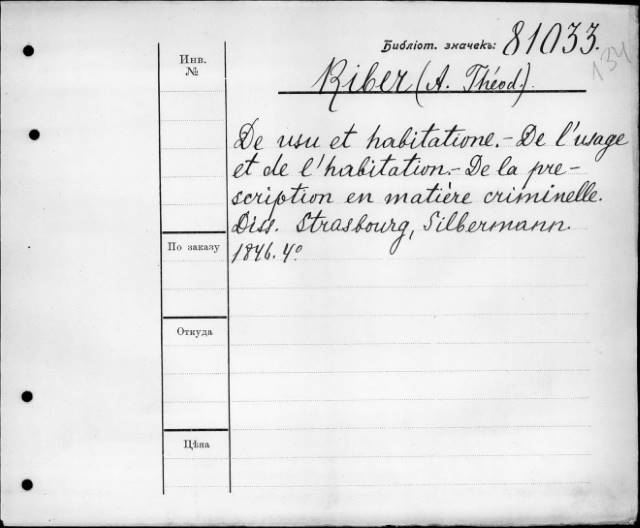 Библіот. значекъ: 81033.
134
Инв.
№
Riber (A. Théod.).
De usu et habitatione. - De l'usage
et de l'habitation. - De la pre-
scription en matière criminelle.
Diss. Strasbourg, Silbermann.
1846. 4°
По заказу
Откуда
Цѣна